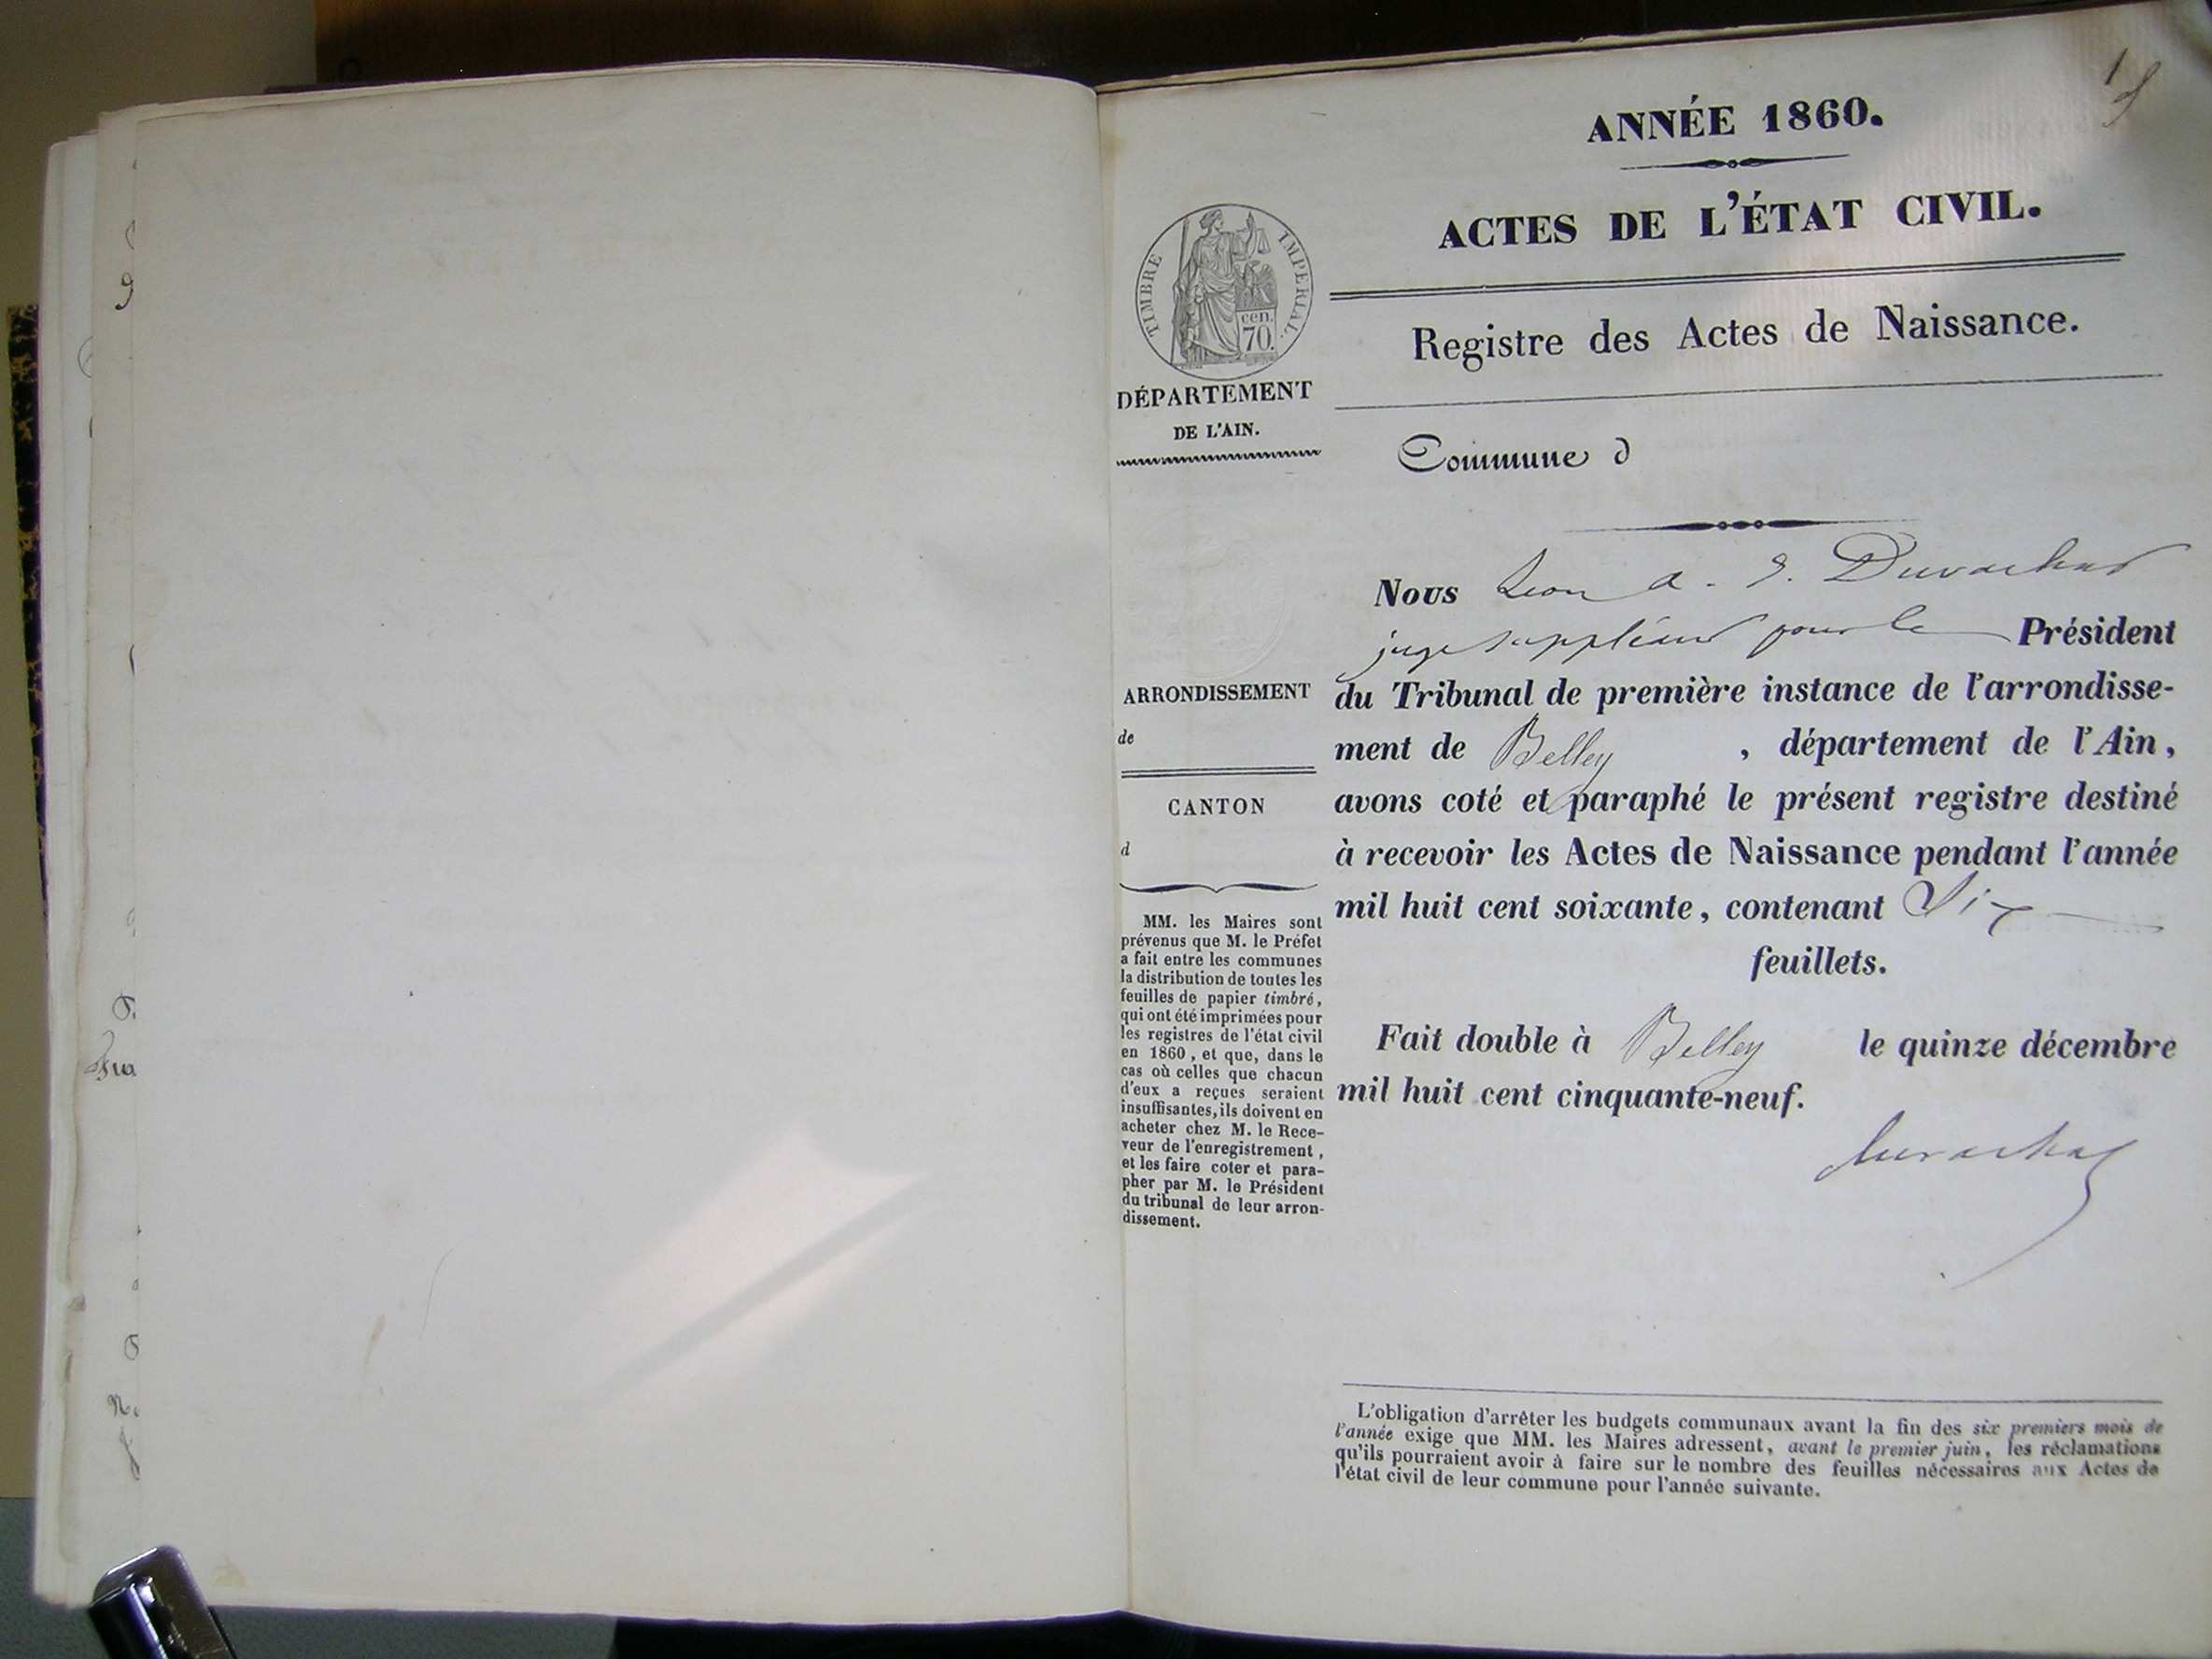 1
ANNÉE 1860.
ACTES DE L'ÉTAT CIVIL.
Registre des Actes de Naissance.
TIMBRE IMPERIAL.
cen.
70.
DÉPARTEMENT
DE L'AIN.
Commune d
Nous Leon a - Duvachat
juge suppléant pour le Président
ARRONDISSEMENT
de
CANTON
d
du Tribunal de première instance de l'arrondisse-
ment de Belley , département de l'Ain,
avons coté et paraphé le présent registre destiné
à recevoir les Actes de Naissance pendant l'année
mil huit cent soixante, contenant Six
feuillets.
Fait double à Belley le quinze décembre
mil huit cent cinquante-neuf.
Duvachat
MM. les Maires sont
prévenus que M. le Préfet
a fait entre les communes
la distribution de toutes les
feuilles de papier timbré,
qui ont été imprimées pour
les registres de l'état civil
en 1860, et que, dans le
cas où celles que chacun
d'eux a reçues seraient
insuffisantes, ils doivent en
acheter chez M. le Rece-
veur de l'enregistrement,
et les faire coter et para-
pher par M. le Président
du tribunal de leur arron-
dissement.
L'obligation d'arrêter les budgets communaux avant la fin des six premiers mois de
l'année exige que MM. les Maires adressent, avant le premier juin, les réclamations
qu'ils pourraient avoir à faire sur le nombre des feuilles nécessaires aux Actes de
l'état civil de leur commune pour l'année suivante.